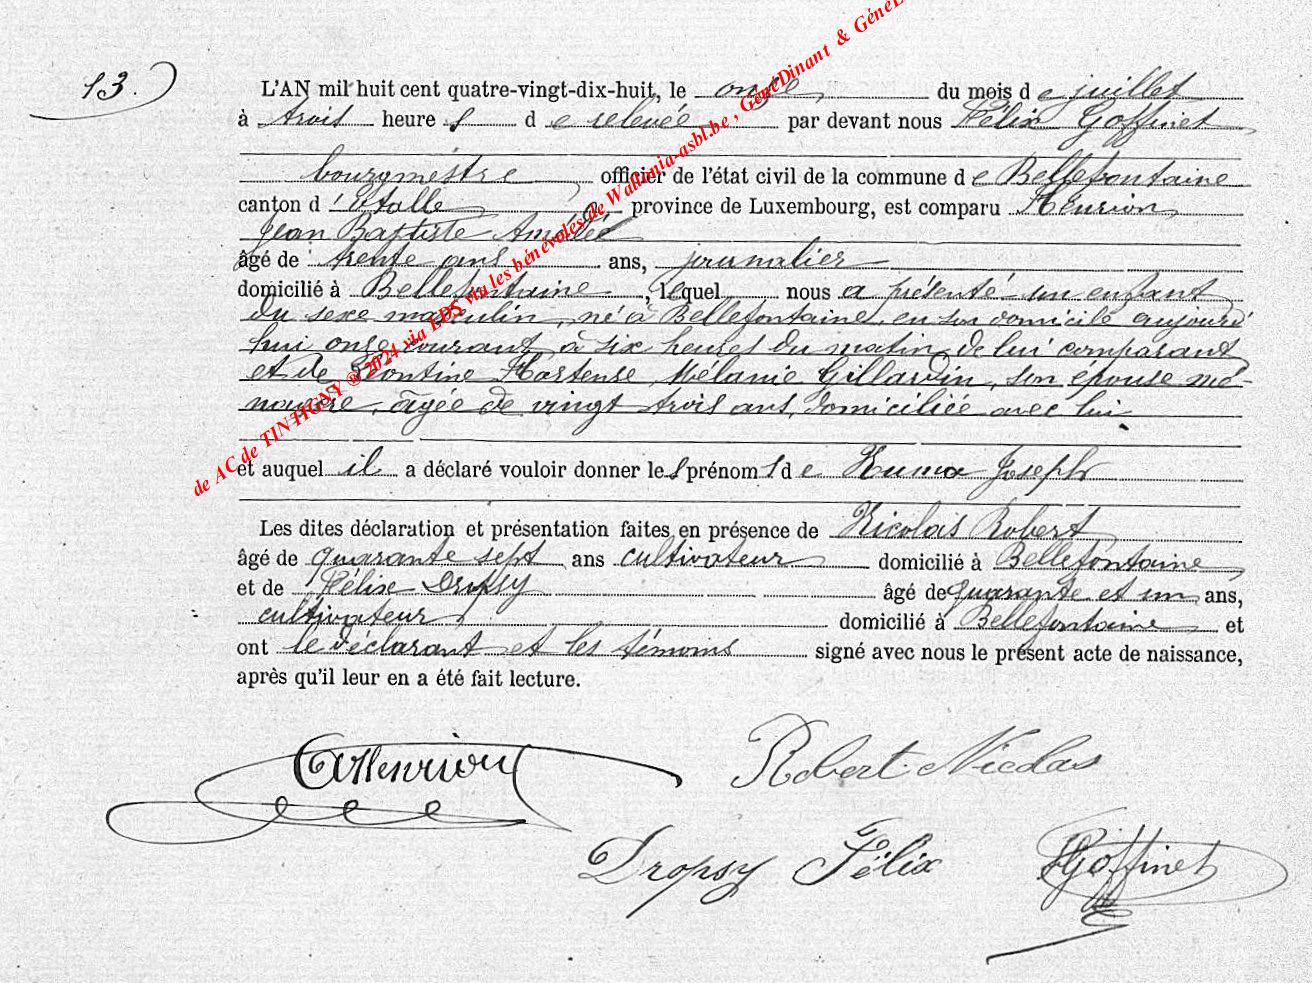 13.
L'AN mil huit cent quatre-vingt-dix-huit, le onze du mois de juillet
à trois heures de relevée par devant nous Félix Goffinet
bourgmestre officier de l'état civil de la commune de Bellefontaine
canton d'Etalle province de Luxembourg, est comparu Henrion
Jean Baptiste Amédée
âgé de trente ans ans, journalier
domicilié à Bellefontaine, lequel nous a présenté un enfant
du sexe masculin, né à Bellefontaine, en son domicile aujourd'
hui onze courant à six heures du matin de lui comparant
et de Hortense Mélanie Gillardin, son épouse mé-
nagère, âgée de vingt trois ans, domiciliée avec lui
et auquel il a déclaré vouloir donner les prénoms de Numa Joseph
Les dites déclaration et présentation faites en présence de Nicolas Robert
âgé de quarante sept ans cultivateur domicilié à Bellefontaine
et de Félix Dropsy âgé de quarante et un ans,
cultivateur domicilié à Bellefontaine et
ont le déclarant et les témoins signé avec nous le présent acte de naissance,
après qu'il leur en a été fait lecture.
Henrion
Robert Nicolas
Dropsy Félix
Goffinet
de AC de TINTIGNY ® 2024 via LDS via les bénévoles de Wallonia-asbl.be , GénéDinant & Géné